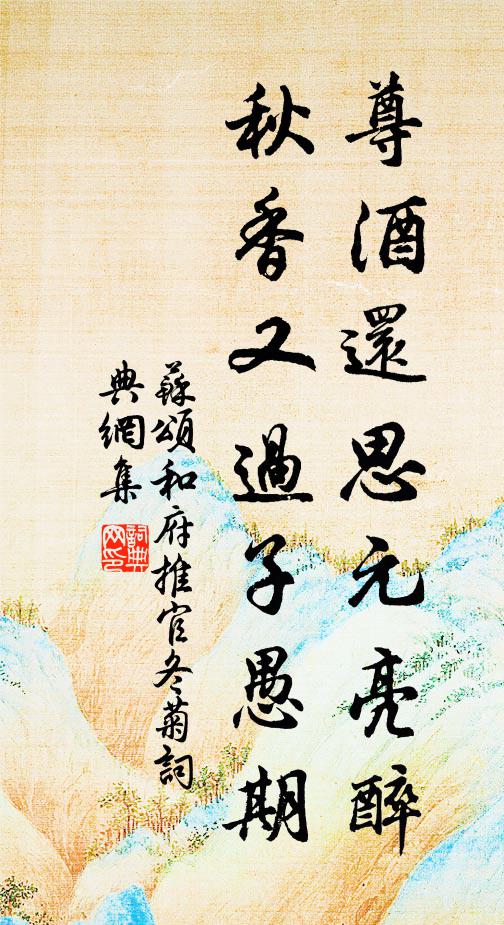 尊酒還思元亮醉
秋香又過子愚期
蘇頌和府推官冬菊詞
典網集
詞典網印